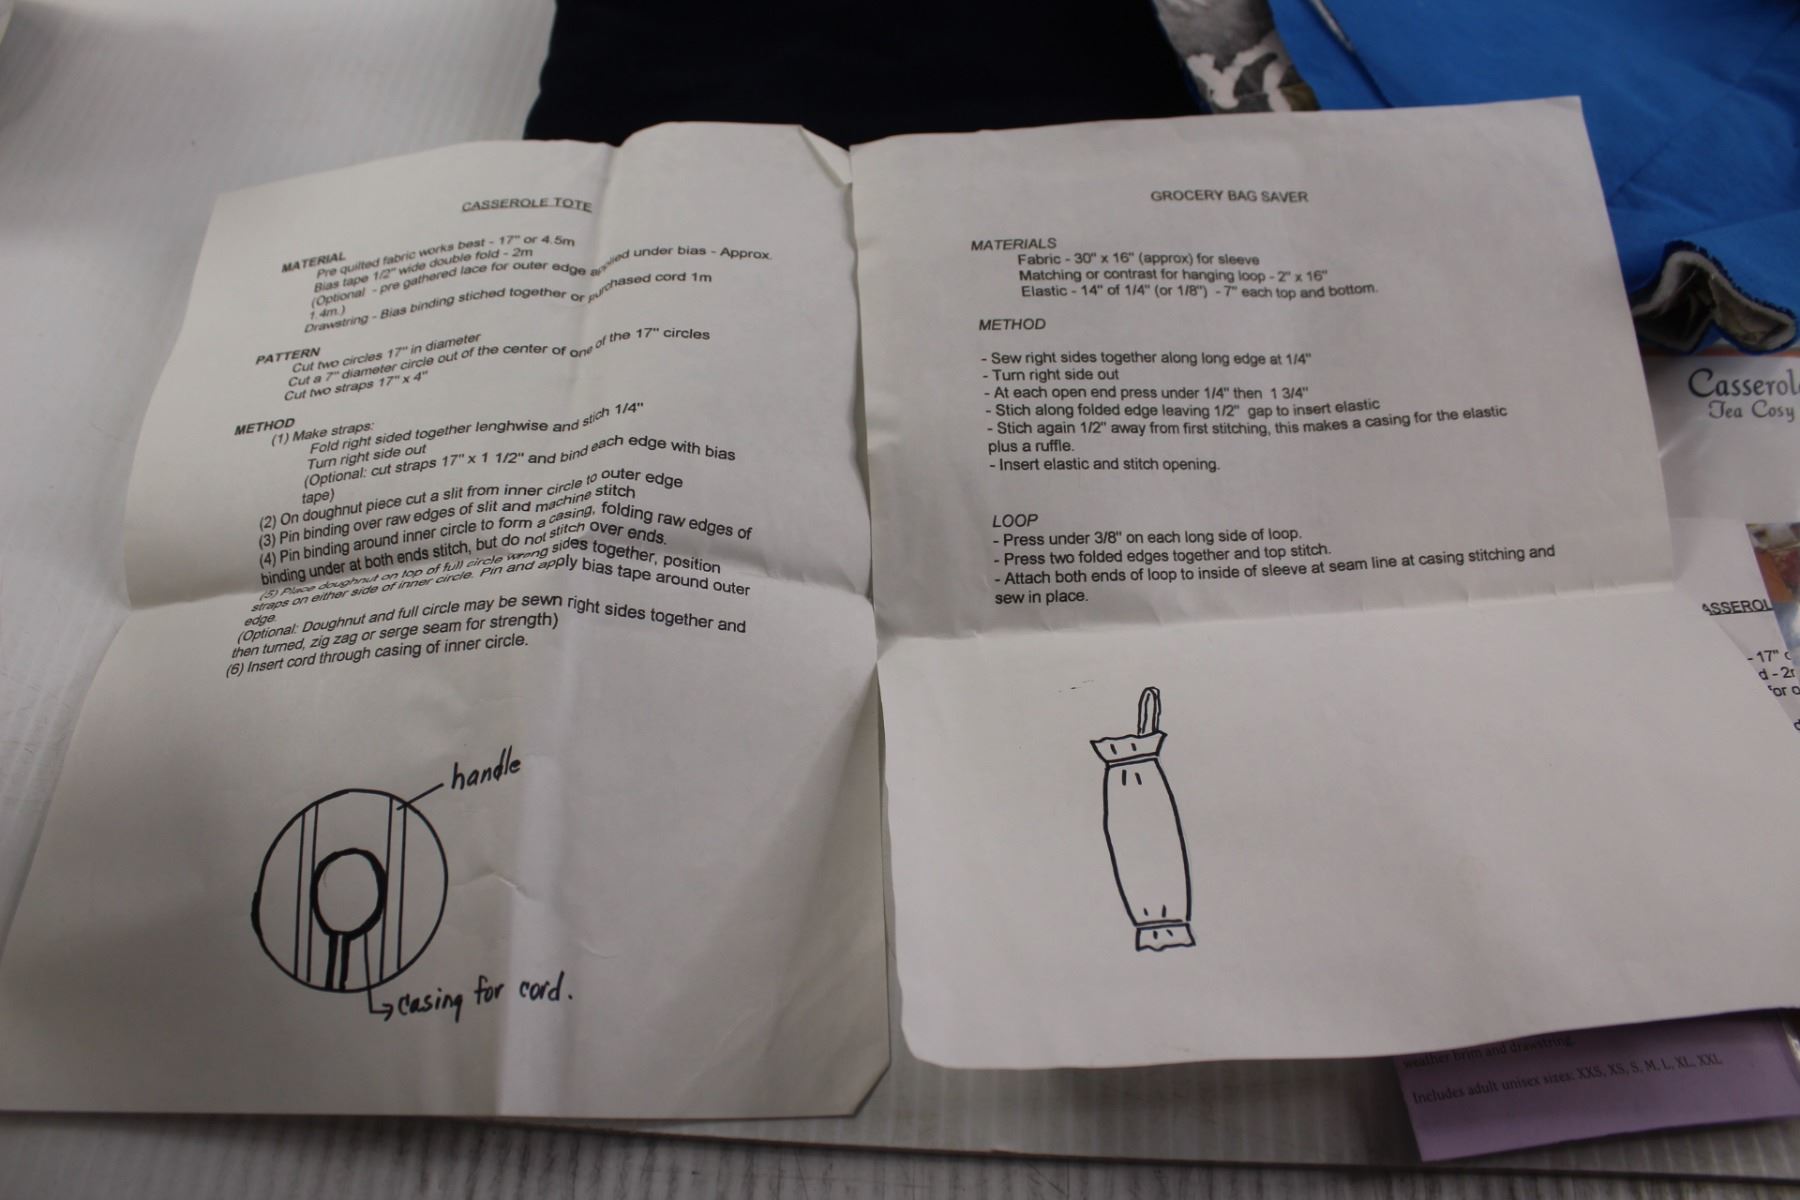 CASSEROLE TOTE
MATERIAL
Pre quilted fabric works best - 17" or 4.5m
Bias tape 1/2" wide double fold - 2m
(Optional - pre gathered lace for outer edge applied under bias - Approx.
1.4m.)
Drawstring - Bias binding stiched together or purchased cord 1m
PATTERN
Cut two circles 17" in diameter
Cut a 7" diameter circle out of the center of one of the 17" circles
Cut two straps 17" x 4"
METHOD
(1) Make straps:
Fold right sided together lenghwise and stich 1/4"
Turn right side out
(Optional: cut straps 17" x 1 1/2" and bind each edge with bias
tape)
(2) On doughnut piece cut a slit from inner circle to outer edge
(3) Pin binding over raw edges of slit and machine stitch
(4) Pin binding around inner circle to form a casing, folding raw edges of
binding under at both ends stitch, but do not stitch over ends.
(5) Place doughnut on top of full circle wrong sides together, position
straps on either side of inner circle. Pin and apply bias tape around outer
edge.
(Optional: Doughnut and full circle may be sewn right sides together and
then turned, zig zag or serge seam for strength)
(6) Insert cord through casing of inner circle.
handle
casing for cord.
GROCERY BAG SAVER
MATERIALS
Fabric - 30" x 16" (approx) for sleeve
Matching or contrast for hanging loop - 2" x 16"
Elastic - 14" of 1/4" (or 1/8") - 7" each top and bottom.
METHOD
- Sew right sides together along long edge at 1/4"
- Turn right side out
- At each open end press under 1/4" then 1 3/4"
- Stich along folded edge leaving 1/2" gap to insert elastic
- Stich again 1/2" away from first stitching, this makes a casing for the elastic
plus a ruffle.
- Insert elastic and stitch opening.
LOOP
- Press under 3/8" on each long side of loop.
- Press two folded edges together and top stitch.
- Attach both ends of loop to inside of sleeve at seam line at casing stitching and
sew in place.
Casserol
Tea Cosy
ASSEROL
- 17"
d - 2
for o
weather brim and drawstring.
Includes adult unisex sizes: XXS, XS, S, M, L, XL, XXL